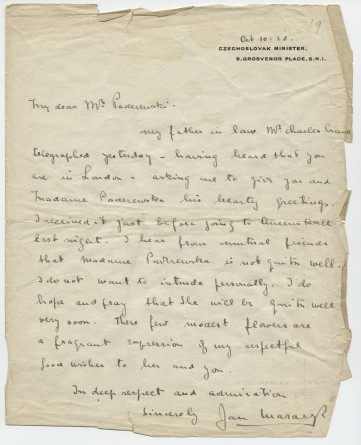 19
Oct 10 - 28
CZECHOSLOVAK MINISTER,
9, GROSVENOR PLACE, S.W.1.
My dear Mr Paderewski -
my father in law Mr Charles Crane
telegraphed yesterday - having heard that you
are in London - asking me to give you and
Madame Paderewska his hearty greetings.
I received it just before going to Queens Hall
last night. I hear from mutual friends
that Madame Paderewska is not quite well.
I do not want to intrude personally. I do
hope and pray that she will be quite well
very soon. These few modest flowers are
a fragrant expression of my respectful
good wishes to her and you.
In deep respect and admiration
Sincerely Jan Masaryk